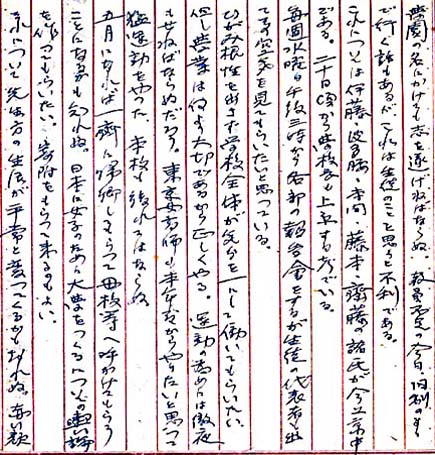 学園の名にかけても志を遂げねばならぬ。教員不足の今日、旧制のまゝ
で行く話もあるがこれは生徒のことを思ふと不利である。
これについては伊藤、波多腰、本間、藤本、齋藤の諸氏が今上京中
である。二十日頃から学校長も上京する考である。
毎週水曜日午後三時から各部の報告会をするが生徒の代表者も出
てその空気を見てもらいたいと思っている。
ひがみ根性を出さず学校全体が気分を一にして働いてもらいたい。
但し学業は何より大切であるから正しくやる。運動の為めには徹夜
もせねばならぬだろう。東京女高師も本年度からやりたいと思って
猛運動をやつた。本校も後れてはならぬ
五月になれば一齊に帰郷してもらって母校等へ呼かけてもらう
ことになるかも知れぬ。日本に女子のための大学をつくるについての輿論
を作ってもらいたい。寄附をもらって来るもよい。
それについても先生方の生活が平常と変ってくるかもしれぬ。